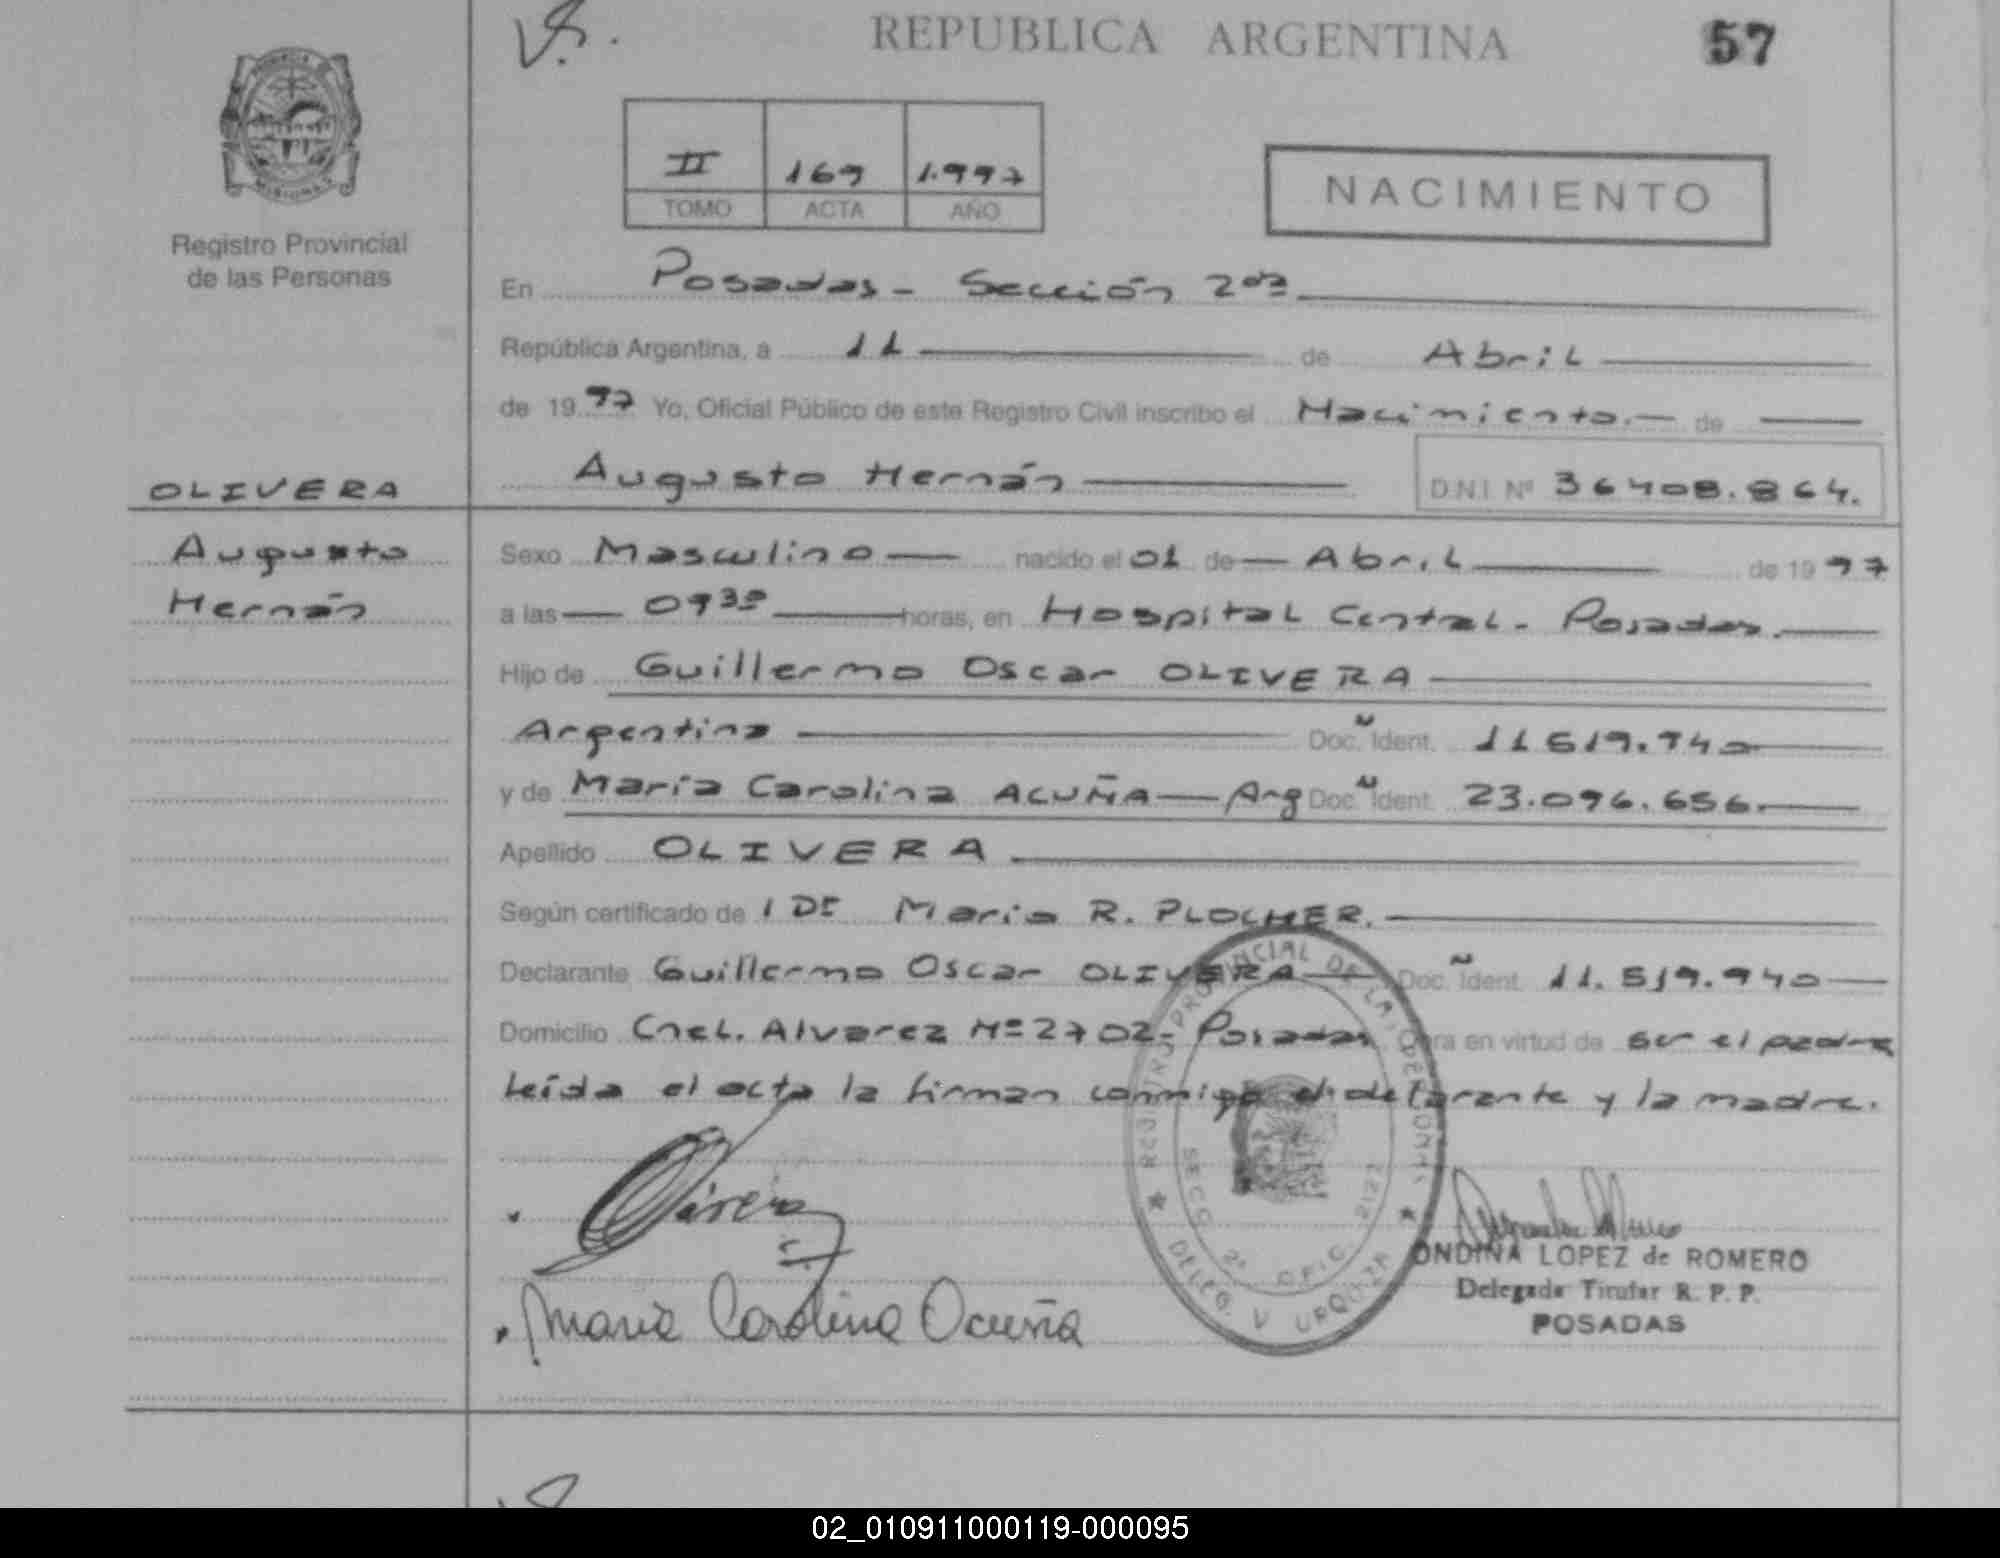 REPUBLICA ARGENTINA
57
II 169 1.997
TOMO ACTA AÑO
NACIMIENTO
MISIONES
Registro Provincial
de las Personas
En Posadas - Sección 2da
República Argentina, a 11 de Abril
de 1997 Yo, Oficial Público de este Registro Civil inscribo el Nacimiento.- de
OLIVERA
Augusto Hernán
D.N.I. Nº 36408.864.
Augusto
Hernán
Sexo Masculino nacido el 01 de Abril de 1997
a las 0930 horas, en Hospital Central. Posadas.
Hijo de Guillermo Oscar OLIVERA
Argentina Doc. Ident. 11519.940
y de María Carolina ACUÑA Arg Doc. Ident. 23.096.656.
Apellido OLIVERA
Según certificado de 1 Dr Mario R. PLOCHER.
Declarante Guillermo Oscar OLIVERA Doc. Ident. 11.519.940
Domicilio Cnel. Alvarez Nº 2702- Posadas Obra en virtud de ser el padre
leída el acta la firman conmigo el declarante y la madre.
REGISTRO PROVINCIAL DE LAS PERSONAS
SECC. 2ª OFIC. 2127
DELEG. V URQUIZA
Olivera
María Carolina Acuña
ONDINA LOPEZ de ROMERO
Delegada Titular R. P. P.
POSADAS
02_010911000119-000095